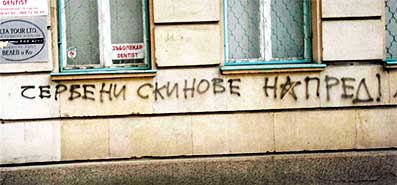 DENTIST
LTA TOUR LTD.
ВЕЛЕВ и Ко
ЗЪБОЛЕКАР
DENTIST
ЧЕРВЕНИ СКИНОВЕ НАПРЕД!